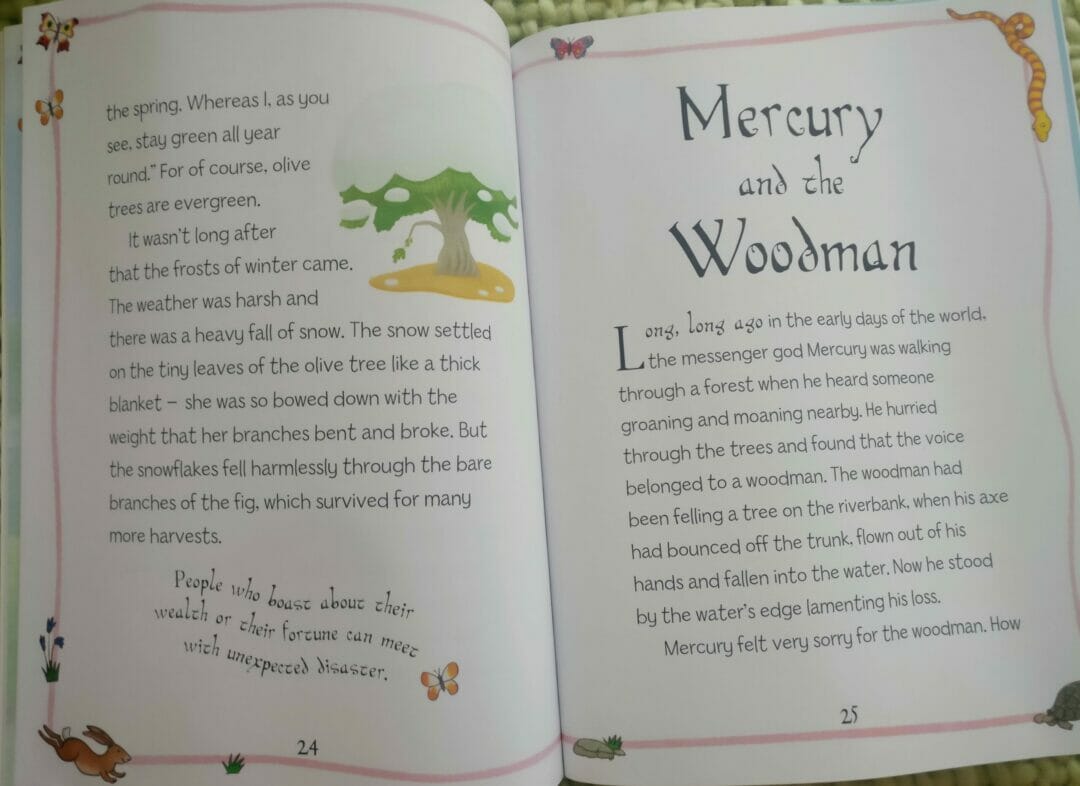 the spring. Whereas I, as you
see, stay green all year
round.” For of course, olive
trees are evergreen.
It wasn’t long after
that the frosts of winter came.
The weather was harsh and
there was a heavy fall of snow. The snow settled
on the tiny leaves of the olive tree like a thick
blanket – she was so bowed down with the
weight that her branches bent and broke. But
the snowflakes fell harmlessly through the bare
branches of the fig, which survived for many
more harvests.
People who boast about their
wealth or their fortune can meet
with unexpected disaster.
24
Mercury
and the
Woodman
Long, long ago in the early days of the world,
the messenger god Mercury was walking
through a forest when he heard someone
groaning and moaning nearby. He hurried
through the trees and found that the voice
belonged to a woodman. The woodman had
been felling a tree on the riverbank, when his axe
had bounced off the trunk, flown out of his
hands and fallen into the water. Now he stood
by the water’s edge lamenting his loss.
Mercury felt very sorry for the woodman. How
25